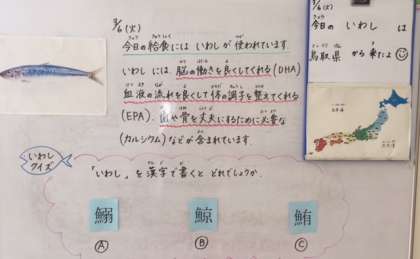 3/6(火)
今日の給食には いわしが 使われています.
いわしには 脳の働きを良くしてくれる(DHA)
血液の流れを良くして体の調子を整えてくれる
(EPA). 歯や骨を丈夫にするために必要な
(カルシウム)などが含まれています.
3/6(火)
今日の いわし は
鳥取県 から来たよ
いわし
クイズ
「いわし」を漢字で書くと どれでしょうか.
鰯 鯨 鮪
Ⓐ Ⓑ Ⓒ